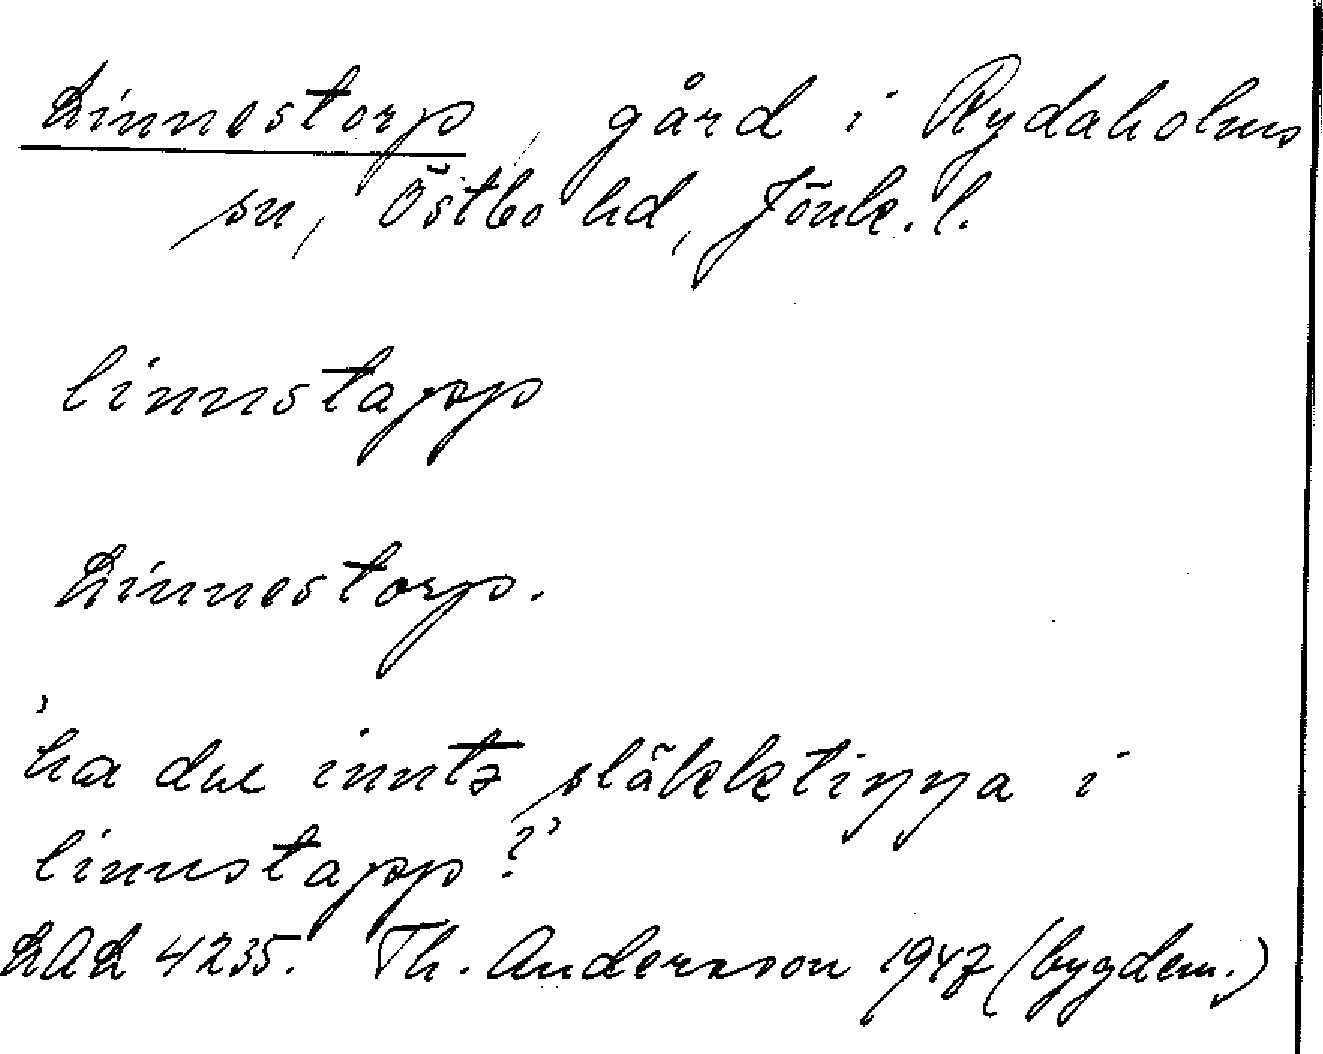 Linnestorp, gård i Rydaholms
sn, Östbo hd, Jönk. l.
linnstapp
Linnestorp.
'ha du inntə släkktiŋŋa i
linnstapp?'
LAL 4235. Th. Andersson 1947 (bygdem.)